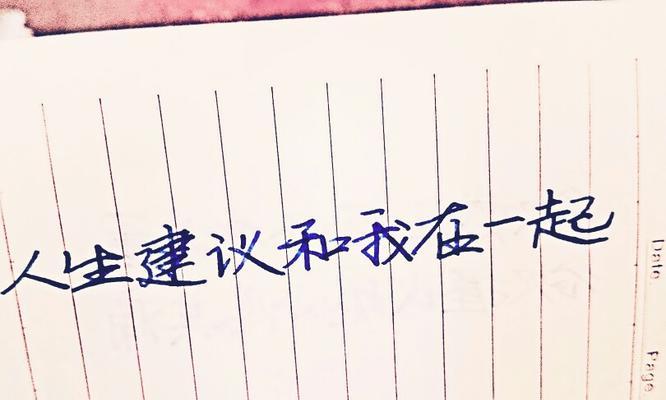 人生建议和我在一起
Date.
Page